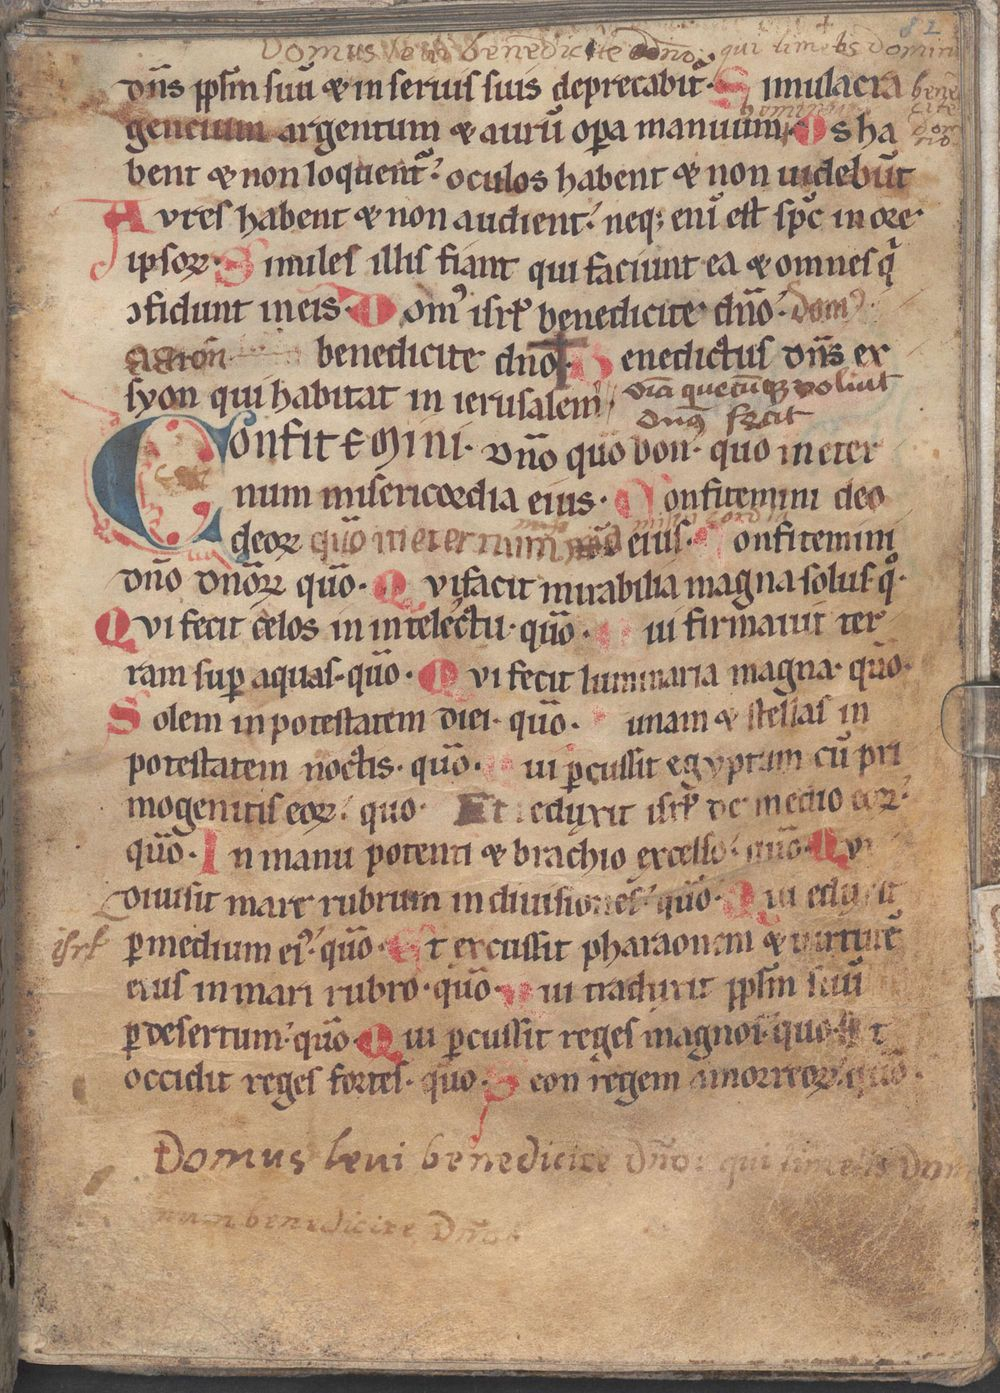 82
Domus leui benedicite dno qui timetis domin
dn̄s pp̄lm suū & in seruis suis deprecabit᷑. Simulacra bene
gencium argentum & aurū op̲a manuum hominum. Os ha cite
bent & non loquent᷑: oculos habent & non uidebūt dom
Aures habent & non audient: neq; enī est sp̄c in ore no
ipsoꝝ. Similes illis fiant qui faciunt ea & omnes q̄
ꝯfidunt in eis. Domꝰ isrł benedicite dn̄o. domꝰ
aaron benedicite dn̄o. Benedictus dn̄s ex
syon qui habitat in ierusalem
om̄ia quecūq; uoluit
dn̄s fecit
Confitemini. dn̄o quo bonꝰ. quo in eter
num misericordia eius. Confitemini deo
deoꝝ quo in eternum misericordia eius. Confitemini
dn̄o dn̄oꝝ quō. Qui facit mirabilia magna solus q̊.
Qui fecit celos in intelectu. quō. Qui firmauit ter
ram sup̲ aquas. quō. Qui fecit luminaria magna. quō.
Solem in potestatem diei. quō. Lunam & stellas in
potestatem noctis. quō. Qui p̲cussit egyptum cū pri
mogenitis eoꝝ: quo. Et eduxit isrł de medio eoꝝ:
quō. In manu potenti & brachio excelso: quō. Qui
diuisit mare rubrum in diuisiones: quō. Qui eduxit
isrł p̲ medium eiꝰ. quō. Et excussit pharaonem & uirtutē
eius in mari rubro. quō. Qui traduxit pp̄lm suū
p̲ desertum: quō. Qui p̲cussit reges magnos: quo. Et
occidit reges fortes. quo. Seon regem amorreoꝝ: quō.
Domus leui benedicite dn̄o: qui timetis dom
num benedicite dn̄o